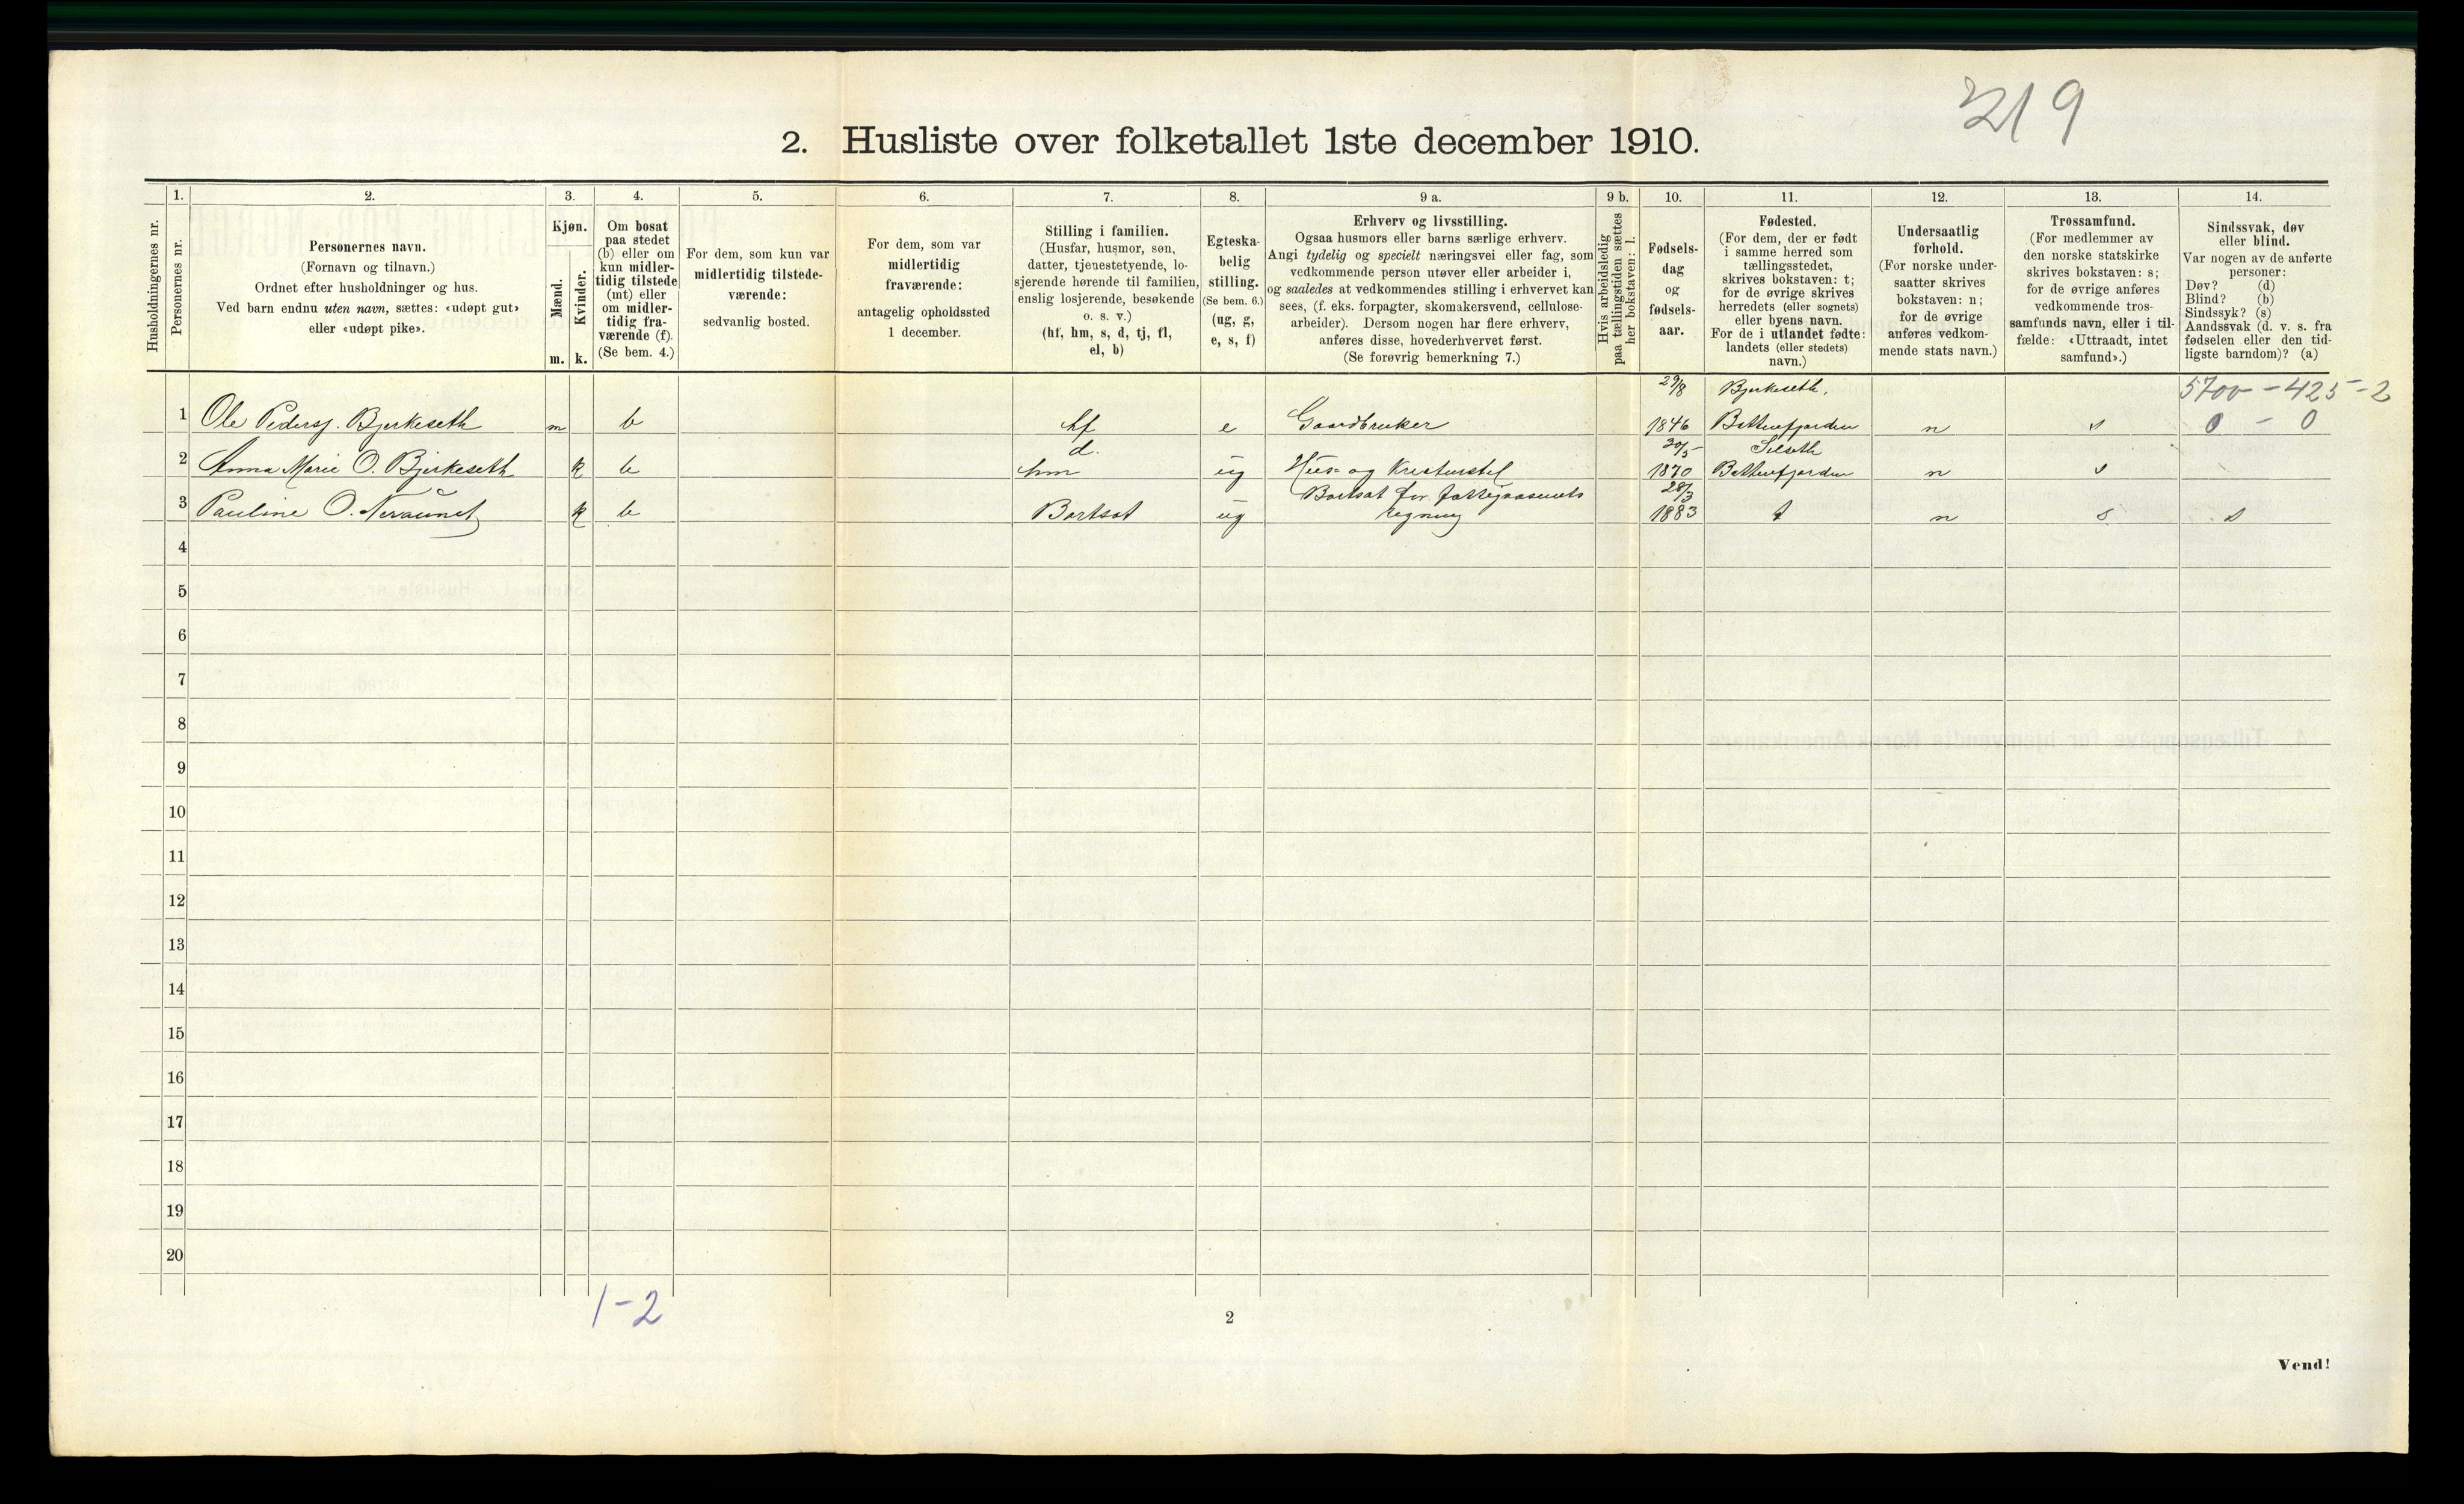 219
2. Husliste over folketallet 1ste december 1910.
Husholdningernes nr.
1.
Personernes nr.
2.
Personernes navn.
(Fornavn og tilnavn.)
Ordnet efter husholdninger og hus.
Ved barn endnu uten navn, sættes: «udøpt gut»
eller «udøpt pike».
3.
Kjøn.
Mænd.
Kvinder.
m. k.
4.
Om bosat
paa stedet
(b) eller om
kun midler-
tidig tilstede
(mt) eller
om midler-
tidig fra-
værende (f).
(Se bem. 4.)
5.
For dem, som kun var
midlertidig tilstede-
værende:
sedvanlig bosted.
6.
For dem, som var
midlertidig
fraværende:
antagelig opholdssted
1 december.
7.
Stilling i familien.
(Husfar, husmor, søn,
datter, tjenestetyende, lo-
sjerende hørende til familien,
enslig losjerende, besøkende
o. s. v.)
(hf, hm, s, d, tj, fl,
el, b)
8.
Egteska-
belig
stilling.
(Se bem. 6.)
(ug, g,
e, s, f)
9 a.
Erhverv og livsstilling.
Ogsaa husmors eller barns særlige erhverv.
Angi tydelig og specielt næringsvei eller fag, som
vedkommende person utøver eller arbeider i,
og saaledes at vedkommendes stilling i erhvervet kan
sees, (f. eks. forpagter, skomakersvend, cellulose-
arbeider). Dersom nogen har flere erhverv,
anføres disse, hovederhvervet først.
(Se forøvrig bemerkning 7.)
9 b.
Hvis arbeidsledig
paa tællingstiden sættes
her bokstaven: l.
10.
Fødsels-
dag
og
fødsels-
aar.
11.
Fødested.
(For dem, der er født
i samme herred som
tællingsstedet,
skrives bokstaven: t;
for de øvrige skrives
herredets (eller sognets)
eller byens navn.
For de i utlandet fødte:
landets (eller stedets)
navn.)
12.
Undersaatlig
forhold.
(For norske under-
saatter skrives
bokstaven: n;
for de øvrige
anføres vedkom-
mende stats navn.)
13.
Trossamfund.
(For medlemmer av
den norske statskirke
skrives bokstaven: s;
for de øvrige anføres
vedkommende tros-
samfunds navn, eller i til-
fælde: «Uttraadt, intet
samfund».)
14.
Sindssvak, døv
eller blind.
Var nogen av de anførte
personer:
Døv? (d)
Blind? (b)
Sindssyk? (s)
Aandssvak (d. v. s. fra
fødselen eller den tid-
ligste barndom)? (a)
29/8 Bjerkeseth, 5700 - 425 - 2
1 Ole Pedersj. Bjerkeseth m b hf e Gaardbruker 1846 Battenfjorden n s 0 - 0
d. 30/5 Silseth
2 Anna Marie O. Bjerkeseth k b hm ug Hus- og Kreaturstel 1870 Battenfjorden n s
Bortsat for fattigvæsenets 28/3
3 Pauline O. Neraunet k b Bortsat ug regning 1883 t n s s
4
5
6
7
8
9
10
11
12
13
14
15
16
17
18
19
20
1-2
2
Vend!